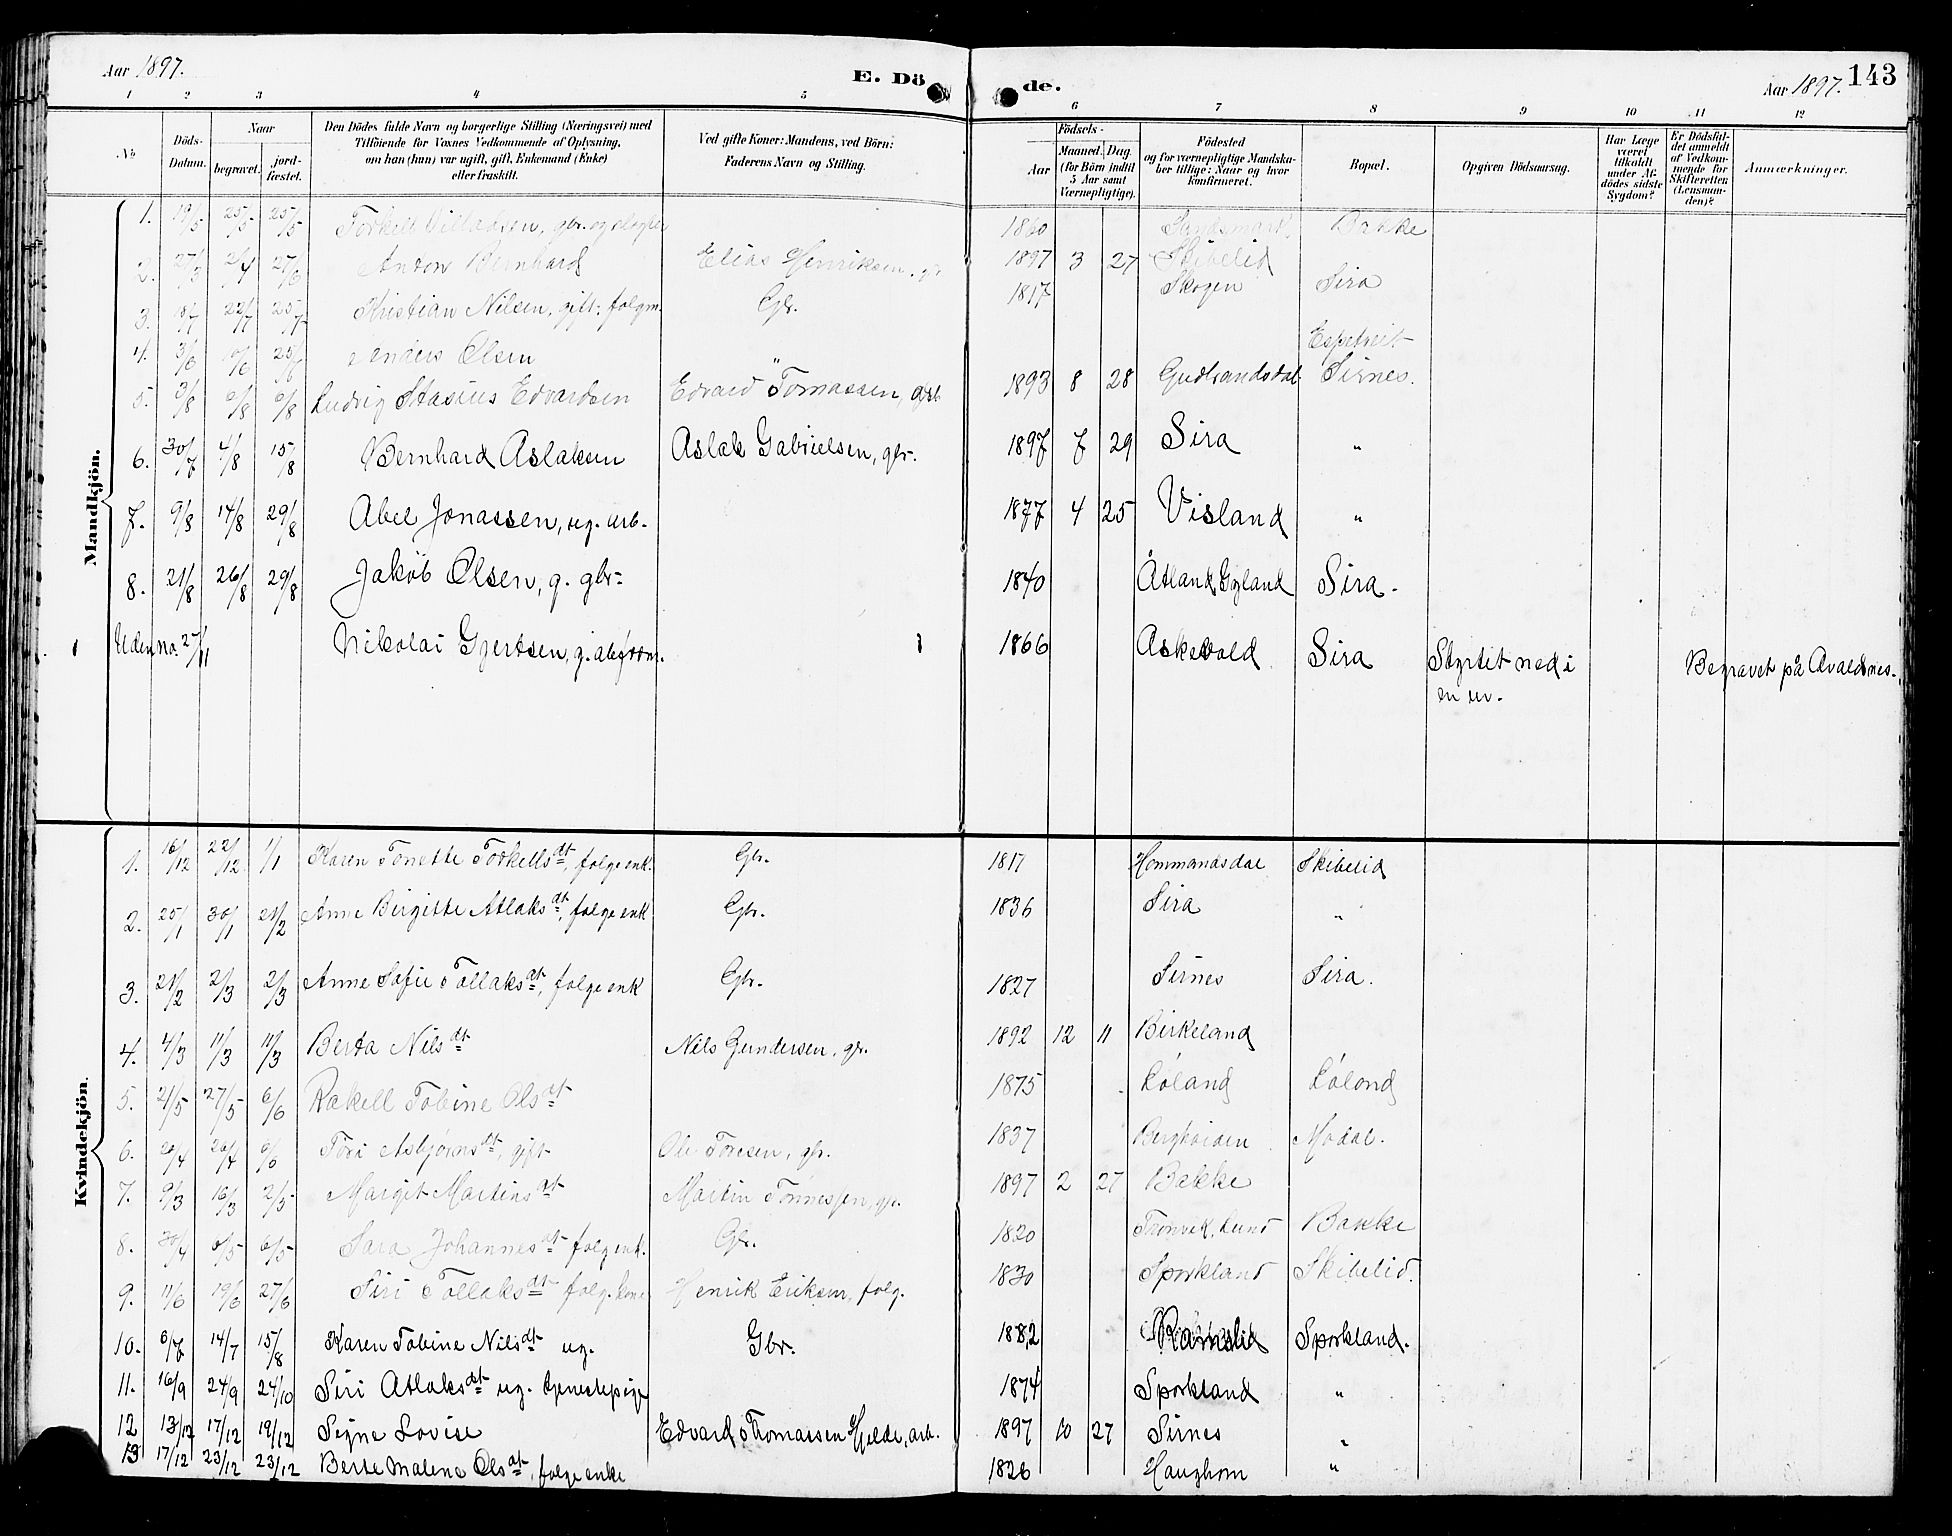 Aar 1897.
E. Dö de.
Aar 1897. 143
1 2 3 4 5 6 7 8 9 10 11 12
No
Döds-Datum.
Naar
begravet.
jord-fæstet.
Den Dödes fulde Navn og borgerlige Stilling (Næringsvei) med
Tilföiende for Voxnes Vedkommende af Oplysning,
om han (hun) var ugift, gift, Enkemand (Enke)
eller fraskilt.
Ved gifte Koner: Mandens, ved Börn:
Faderens Navn og Stilling.
Födsels-
Aar
Maaned. Dag.
(for Börn indtil
5 Aar samt
Værnepligtige).
Födested
og for værnepligtige Mandska-
ber tillige: Naar og hvor
konfirmeret.
Bopæl.
Opgiven Dödsaarsag.
Har Læge
været
tilkaldt
under Af-
dödes sidste
Sygdom?
Er Dödsfal-
det anmeldt
af Vedkom-
mende for
Skifteretten
(Lensman-
den)?
Anmærkninger.
Mandkjön.
1. 19/5 25/5 25/5 1860 Bakke
2. 27/3 2/4 27/6 Anton Bernhard Elias Henriksen, gbr 1897 3 27 Skibelid
3. 18/7 22/7 25/7 Kristian Nilsen, gift, folgm. Gbr. 1817 Skogen Sira
4. 3/6 10/6 25/6 Anders Olsen " Espetveit
5. 3/8 6/8 6/8 Ludvig Stasius Edvardsen Edvard Tomassen, 1893 8 28 Gudbrandsdal Sirnes.
6. 30/7 4/8 15/8 Bernhard Aslaksen Aslak Gabrielsen, gbr. 1897 7 29 Sira "
7. 9/8 14/8 29/8 Abel Jonassen, ug. arb. 1877 4 25 Visland "
8. 21/8 26/8 29/8 Jakob Olsen, g. gbr. 1840 Åtland, Gyland Sira.
Uden no. 27/11 Nikolai Gjertsen, g. 1866 Askevold Sira Styrtet ned i Begravet på Avaldsnes.
en ur.
Kvindekjön.
1. 16/12 22/12 1/1 Karen Tonette Torkellsdt, folgeenk. Gbr. 1817 Hommandsdal Skibelid
2. 25/1 30/1 21/2 Anne Birgitte Atlaksdt, folgeenk Gbr. 1836 Sira "
3. 21/2 2/3 2/3 Anne Sofie Tollaksdt, folgeenk Gbr. 1827 Sirnes Sira.
4. 4/3 11/3 11/3 Berta Nilsdt Nils Gundersen, gbr. 1892 12 11 Birkeland
5. 21/5 27/5 6/6 Rakell Tobine Olsdt 1875 Løland Løland
6. 20/4 6/6 Tori Asbjørnsdt, gift Ole Toresen, gbr. 1837 Modal.
7. 9/3 16/3 2/5 Margit Martinsdt Martin Tønnessen, gbr. 1897 2 27 Bakke
8. 30/4 6/5 6/5 Sara Johannesdt folgenk. Gbr. 1820 Tronvik, Lund Bakke
9. 11/6 19/6 27/6 Siri Tollaksdt folg.kone Henrik Eriksen, folg. 1830 Sporkland Skibelid.
10. 6/7 14/7 15/8 Karen Tobine Nilsdt ug. Gbr. 1882 Ramslid Sporkland.
11. 16/9 24/9 24/10 Siri Atlaksdt ug. tjenestepige 1874 Sporkland "
12 13/12 17/12 19/12 Signe Lovise Edvard Thomassen Hjelde, arb. 1897 10 27 Sirnes "
13 17/12 23/12 23/12 Berte Malene Olsdt, folgeenke 1826 Haughom "